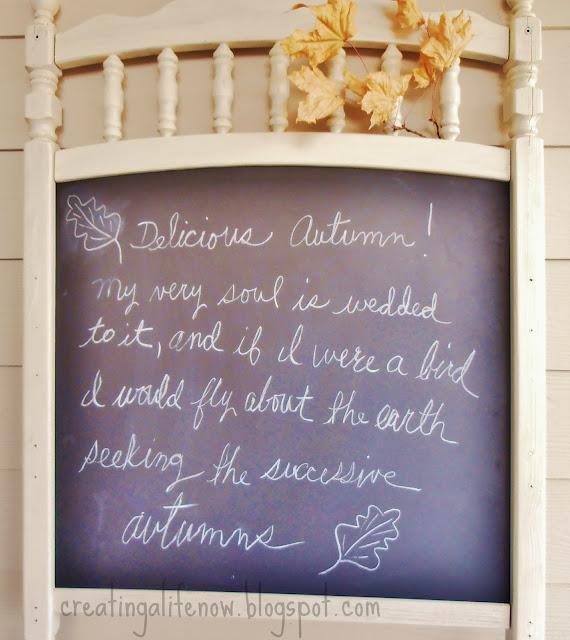 Delicious Autumn!
My very soul is wedded
to it, and if I were a bird
I would fly about the earth
seeking the successive
autumns
creatingalifenow.blogspot.com